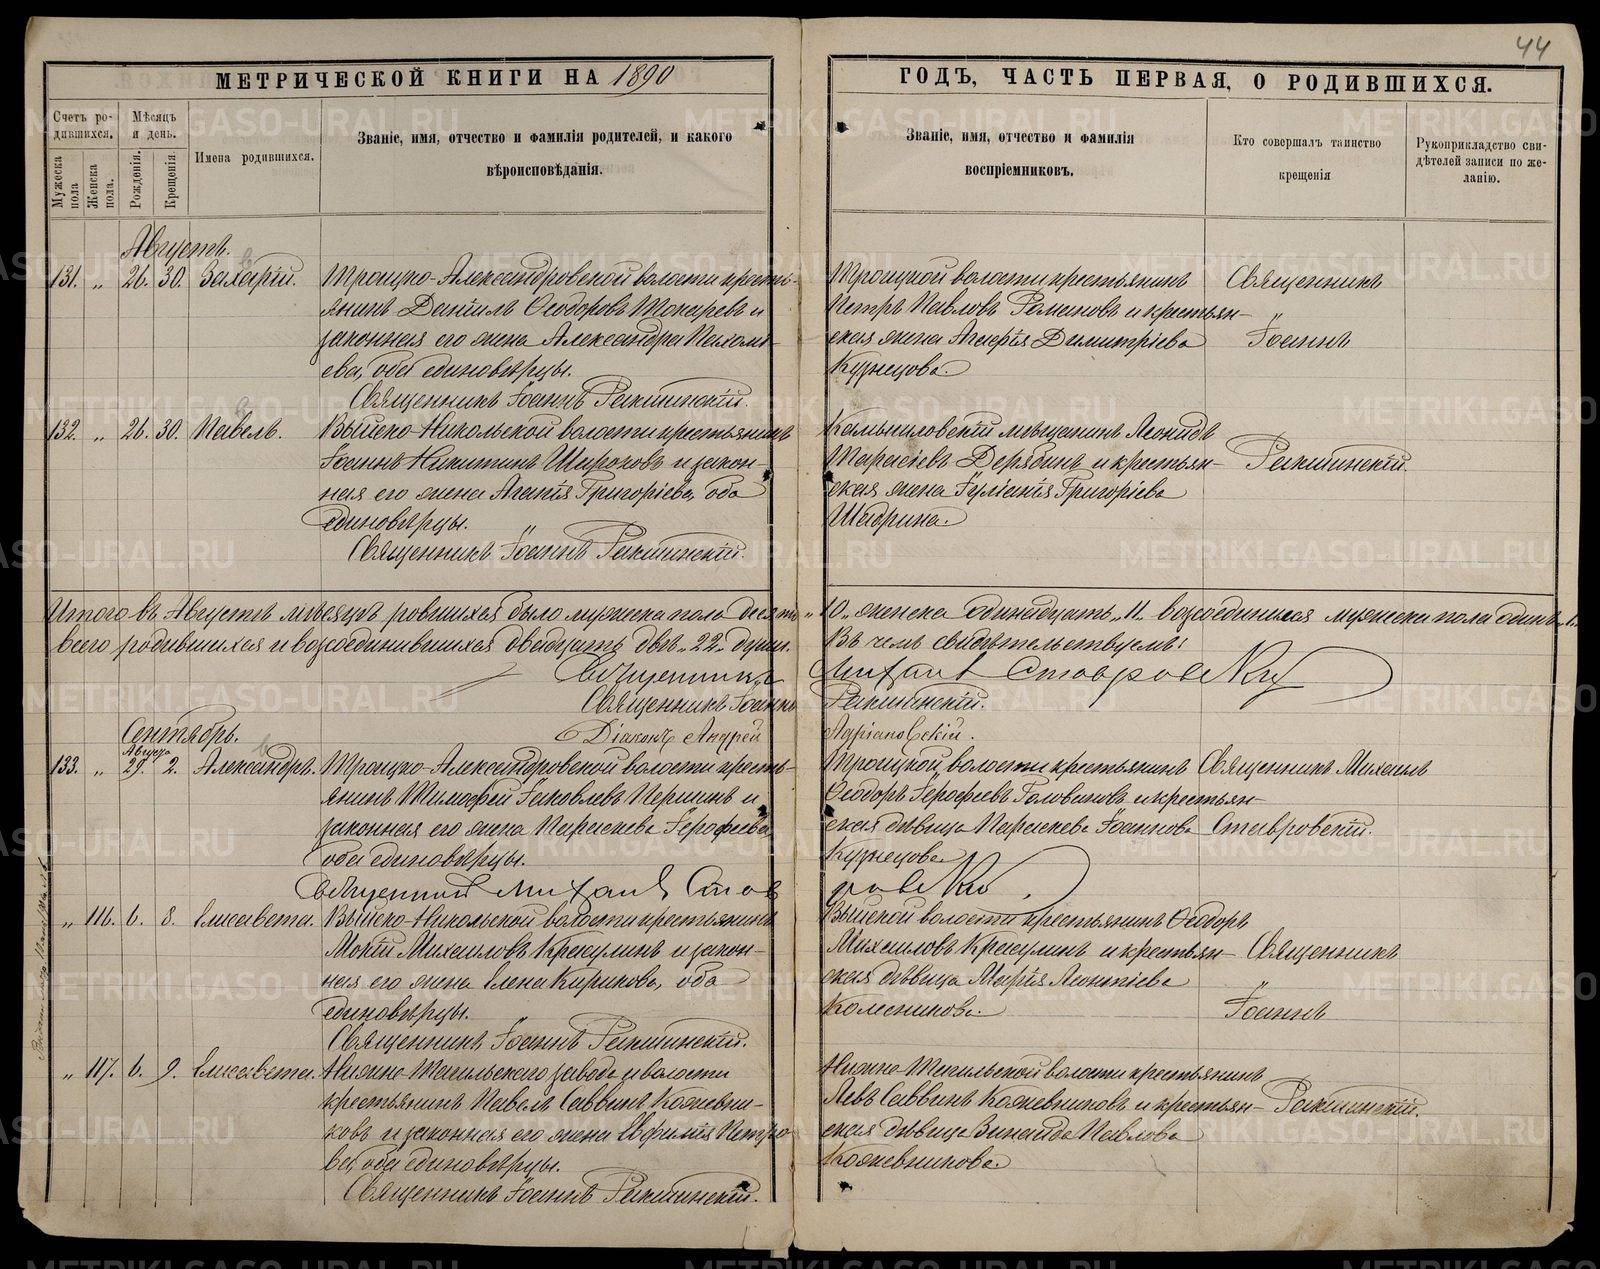 44
МЕТРИЧЕСКОЙ КНИГИ НА 1890
ГОДЪ, ЧАСТЬ ПЕРВАЯ, О РОДИВШИХСЯ.
Счетъ родившихся.
Мужеска пола
Женска пола.
Мѣсяцъ и день.
Рожденія.
Крещенія
Имена родившихся.
Званіе, имя, отчество и фамилія родителей, и какого
вѣроисповѣданія.
Званіе, имя, отчество и фамилія
воспріемниковъ.
Кто совершалъ таинство
крещенія
Рукоприкладство сви-
дѣтелей записи по же-
ланію.
Августъ.
131. „ 26. 30. Захарій. Троицко-Александровской волости кресть-
янинъ Даніилъ Ѳеодоровъ Токаревъ и
законная его жена Александра Пахомі-
ева, оба единовѣрцы.
Священникъ Іоаннъ Ракшинскій.
Троицкой волости крестьянинъ
Петръ Павловъ Романовъ и крестьян-
ская жена Агафія Димитріева
Кузнецова.
Священникъ
Іоаннъ
132. „ 26. 30. Павелъ. Выйско-Никольской волости крестьянинъ
Іоаннъ Никитинъ Широковъ и закон-
ная его жена Агапія Григоріева, оба
единовѣрцы.
Священникъ Іоаннъ Ракшинскій.
Камышловскій мѣщанинъ Леонидъ
Тарасіевъ Дерябинъ и крестьян-
ская жена Іуліанія Григоріева
Шадрина.
Ракшинскій.
Итого въ Августѣ мѣсяцѣ родившихся было мужеска пола десять „10„ женска одинадцать „11„ возсоединился мужеска пола одинъ „1„
всего родившихся и возсоединившихся двадцать двѣ „22„ души.
Въ чемъ свидѣтельствуемъ:
Священникъ Михаилъ Ставровскій
Священникъ Іоаннъ Ракшинскій.
Діаконъ Андрей Адріановскій.
Сентябрь.
Августа
133. „ 29. 2. Александръ. Троицко-Александровской волости кресть-
янинъ Тимофей Іаковлевъ Першинъ и
законная его жена Параскева Іерофеева
оба единовѣрцы.
Священникъ Михаилъ Ставровскій
Троицкой волости крестьянинъ
Ѳеодоръ Іерофеевъ Головановъ и крестьян-
ская дѣвица Параскева Іоаннова
Кузнецова.
Священникъ Михаилъ
Ставровскій.
„ 116. 6. 8. Елисавета. Выйско-Никольской волости крестьянинъ
Мокій Михаиловъ Красулинъ и закон-
ная его жена Елена Карпова, оба
единовѣрцы.
Священникъ Іоаннъ Ракшинскій.
Выйской волости крестьянинъ Ѳеодоръ
Михаиловъ Красулинъ и крестьян-
ская дѣвица Марія Леонтіева
Колесникова.
Священникъ
Іоаннъ
„ 117. 6. 9. Елисавета. Нижне-Тагильскаго завода и волости
крестьянинъ Павелъ Саввинъ Кожевни-
ковъ и законная его жена Евфимія Петро-
ва, оба единовѣрцы.
Священникъ Іоаннъ Ракшинскій.
Нижне-Тагильской волости крестьянинъ
Левъ Саввинъ Кожевниковъ и крестьян-
ская дѣвица Зинаида Павлова
Кожевникова.
Ракшинскій.
METRIKI.GASO-URAL.RU